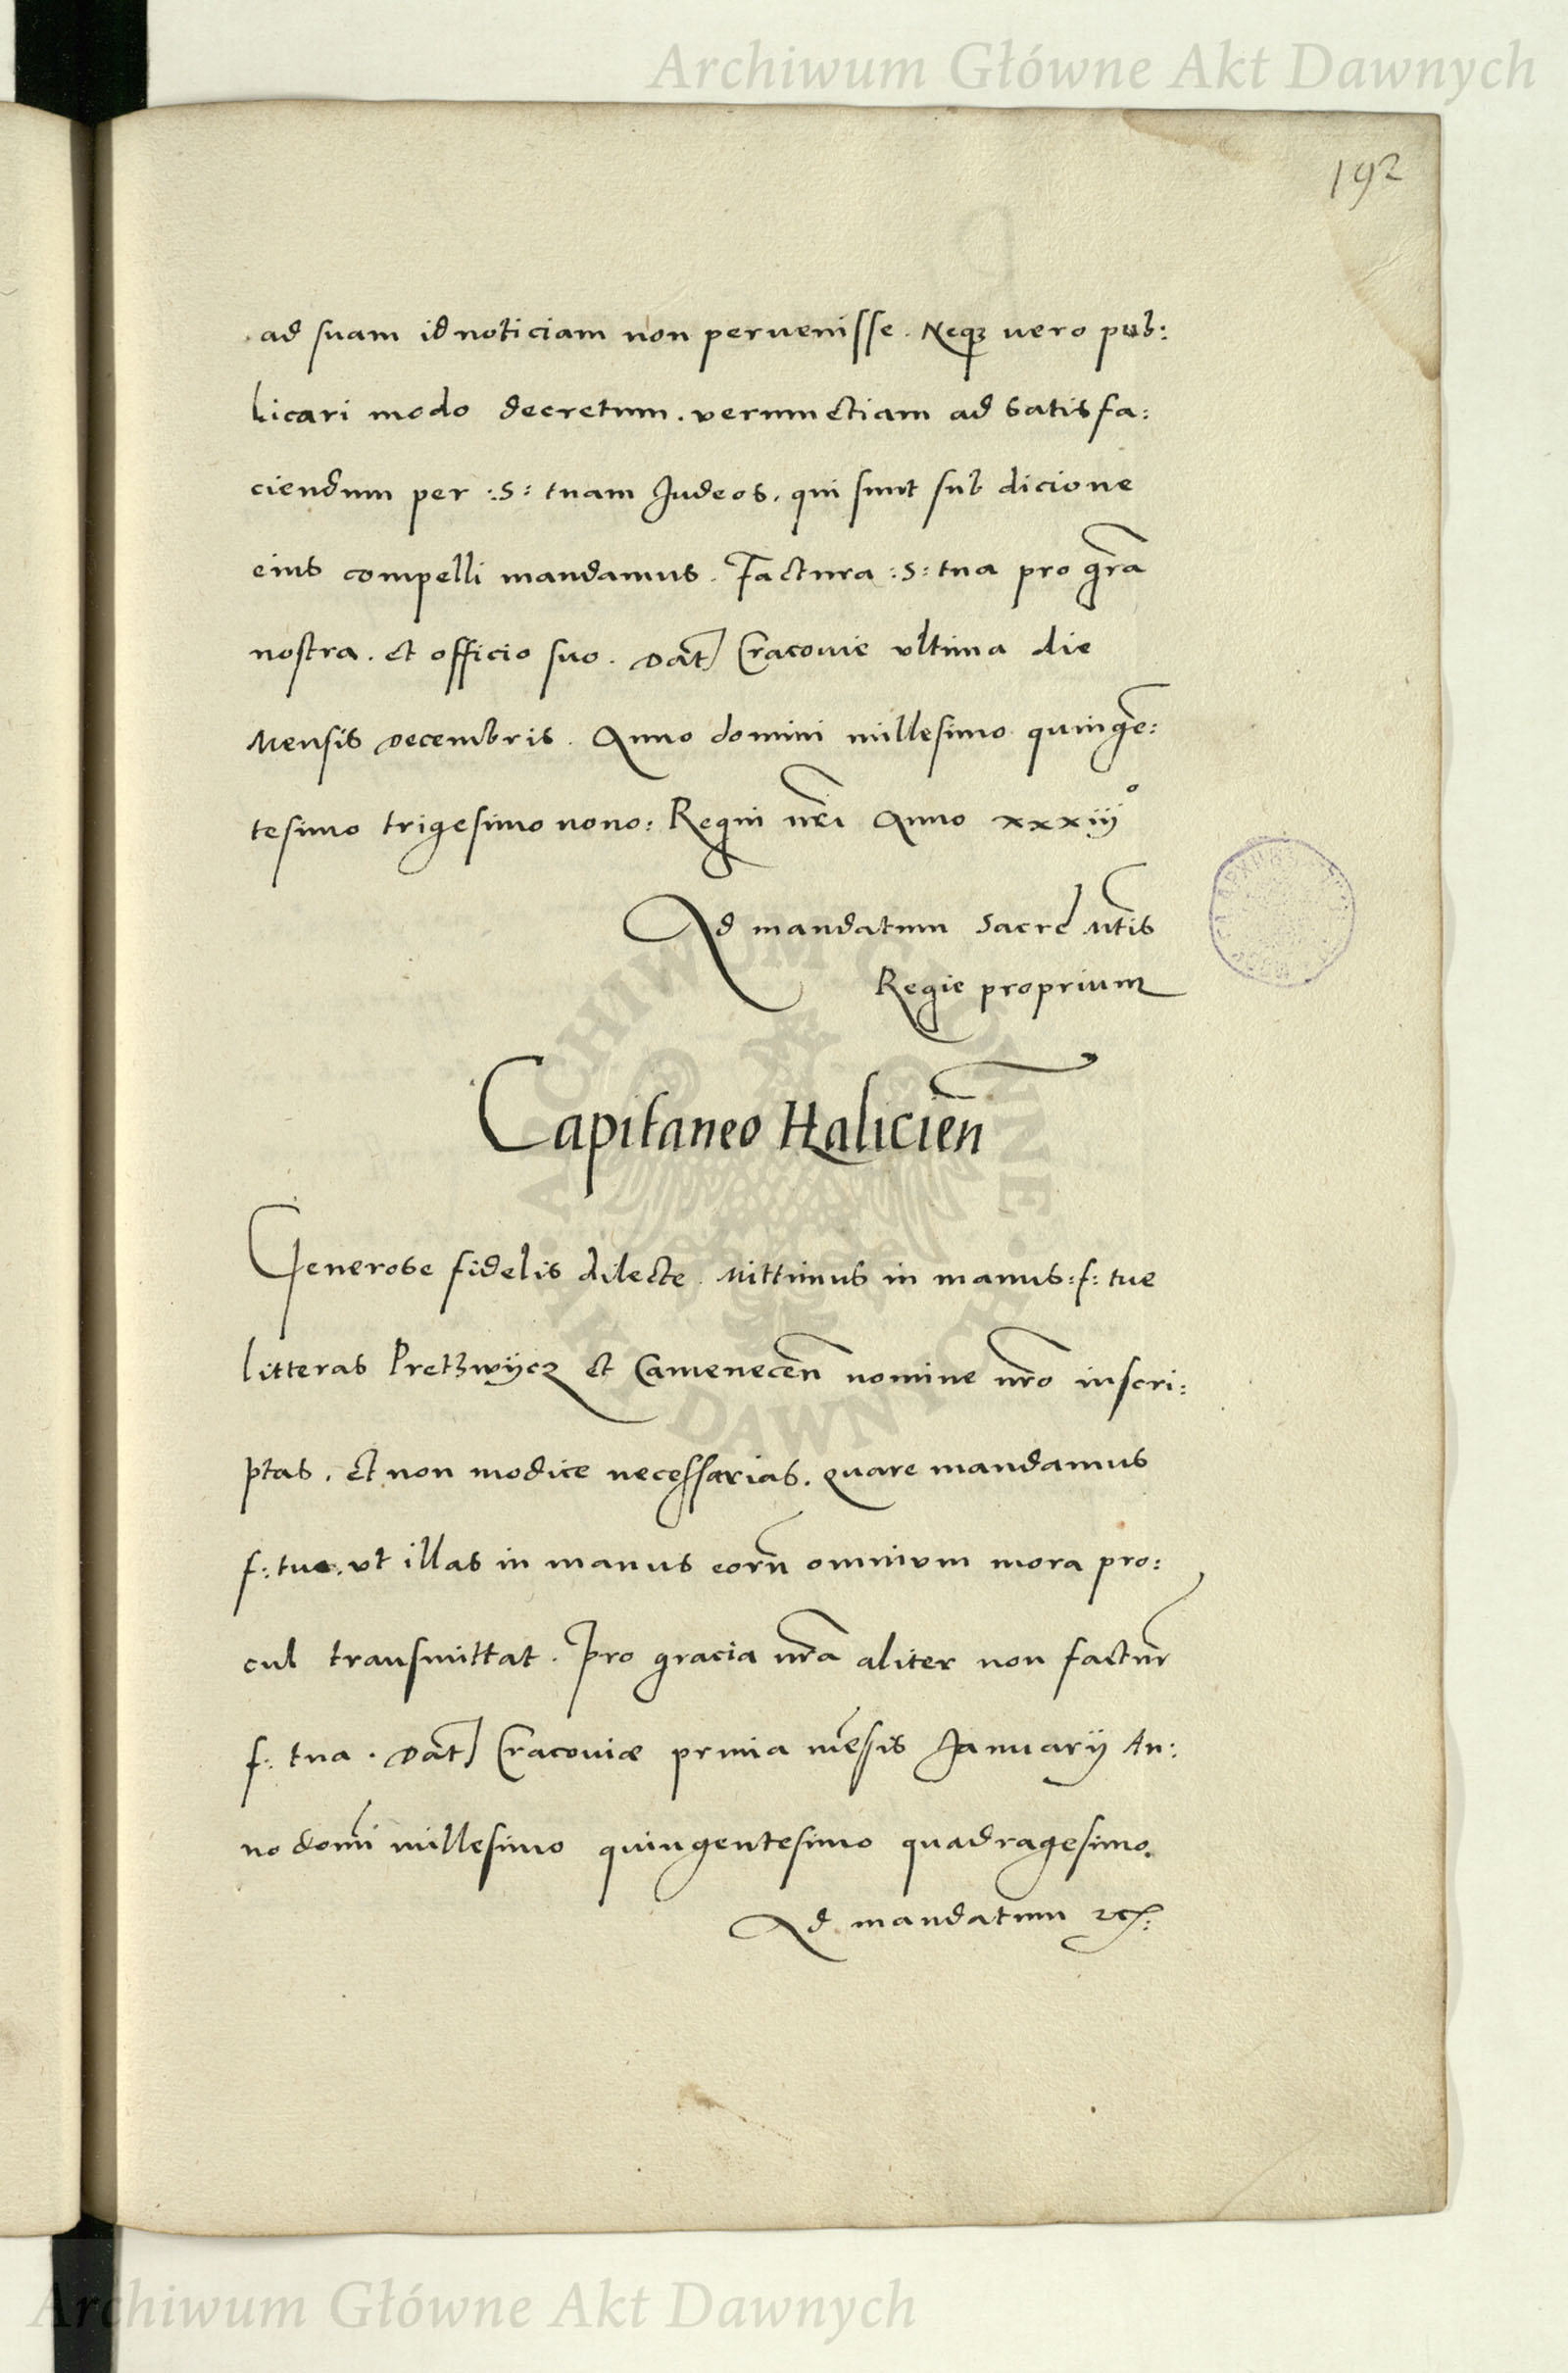 Archiwum Główne Akt Dawnych
192
ad suam id noticiam non pervenisse. Neqȝ vero pub:
licari modo decretum. verum etiam ad satisfa:
ciendum per :S: tuam Judeos. qui sunt sub dicione
eius compelli mandamus. Factura :S: tua pro gr̃a
nostra. et officio suo. Dat̃ Cracovie ultima die
Mensis Decembris. Anno domini millesimo quingẽ:
tesimo trigesimo nono: Regni nr̃i Anno xxxiij°
Ad mandatum Sacre Mt̃is
Regie proprium
Capitaneo Halicień
Generose fidelis dilecte. Mittimus in manus :f: tue
litteras Prethwÿcz et Cameneceñ nomine nr̃o inscri:
ptas. Et non modice necessarias. Quare mandamus
f: tue. vt illas in manus eorũ omnivm mora pro:
cul transmittat. Pro gracia nr̃a aliter non factur̃
f: tua. Dat̃ Cracoviæ prima mẽsis Januarij An:
no domi millesimo quingentesimo quadragesimo.
Ad mandatum etc:
ARCHIWUM GŁÓWNE AKT DAWNYCH
Archiwum Główne Akt Dawnych